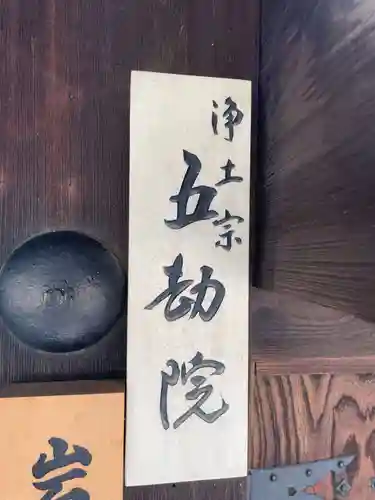 浄土宗
五劫院